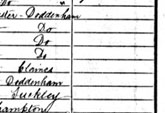 Do
ster - Doddenham
Do
Do
Do
Claines
Doddenham
Suckley
hampton